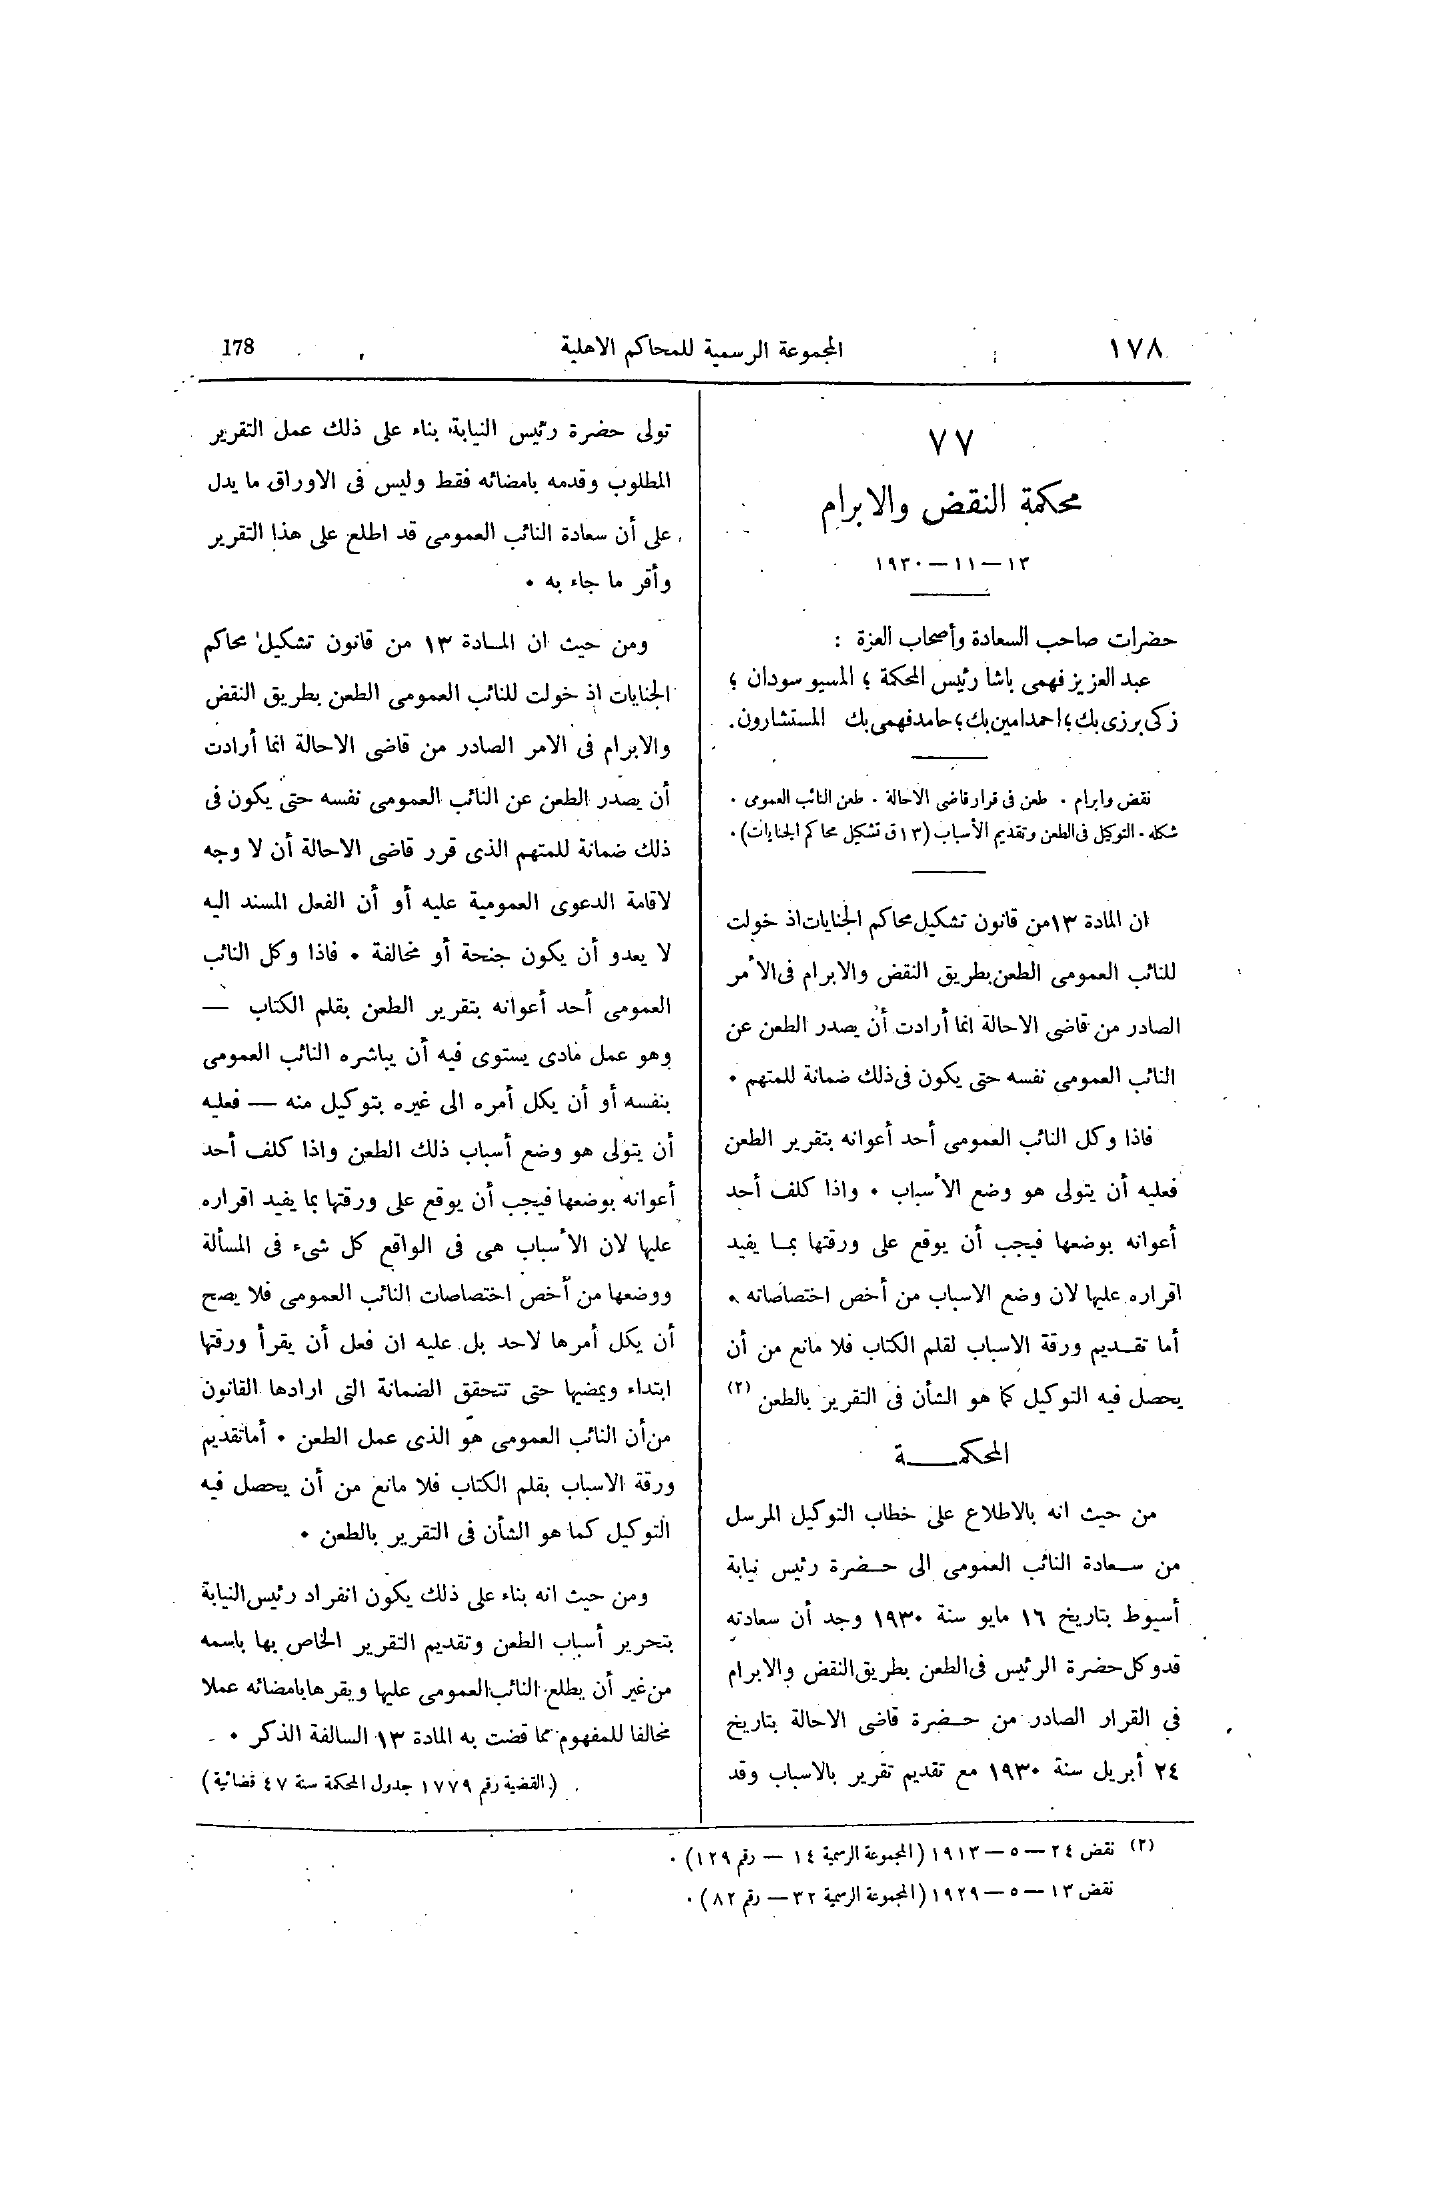 ١٧٨
المجموعة الرسمية للمحاكم الاهلية
178
٧٧
محكمة النقض والابرام
١٣ — ١١ — ١٩٣٠
حضرات صاحب السعادة وأصحاب العزة :
عبد العزيز فهمى باشا رئيس المحكمة ؛ المسيو سودان ؛
زكى برزى بك ؛ احمد امين بك ؛ حامد فهمى بك المستشارون.
نقض وابرام ٠ طعن فى قرار قاضى الاحالة ٠ طعن النائب العمومى ٠
شكله ٠ التوكيل فى الطعن وتقديم الأسباب (١٣ ق تشكيل محاكم الجنايات) ٠
ان المادة ١٣ من قانون تشكيل محاكم الجنايات اذ خولت
للنائب العمومى الطعن بطريق النقض والابرام فى الأمر
الصادر من قاضى الاحالة انما أرادت أن يصدر الطعن عن
النائب العمومى نفسه حتى يكون فى ذلك ضمانة للمتهم ٠
فاذا وكل النائب العمومى أحد أعوانه بتقرير الطعن
فعليه أن يتولى هو وضع الأسباب ٠ واذا كلف أحد
أعوانه بوضعها فيجب أن يوقع على ورقتها بمـا يفيد
اقراره عليها لان وضع الاسباب من أخص اختصاصاته ٠
أما تقـديم ورقة الاسباب لقلم الكتاب فلا مانع من أن
يحصل فيه التوكيل كما هو الشأن فى التقرير بالطعن (٢)
المحكمــــة
من حيث انه بالاطلاع على خطاب التوكيل المرسل
من سـعادة النائب العمومى الى حـضرة رئيس نيابة
أسيوط بتاريخ ١٦ مايو سنة ١٩٣٠ وجد أن سعادته
قد وكل حضرة الرئيس فى الطعن بطريق النقض والابرام
في القرار الصادر من حـضرة قاضى الاحالة بتاريخ
٢٤ أبريل سنة ١٩٣٠ مع تقديم تقرير بالاسباب وقد
تولى حضرة رئيس النيابة بناء على ذلك عمل التقرير
المطلوب وقدمه بامضائه فقط وليس فى الاوراق ما يدل
على أن سعادة النائب العمومى قد اطلع على هذا التقرير
وأقر ما جاء به ٠
ومن حيث ان المـادة ١٣ من قانون تشكيل محاكم
الجنايات اذ خولت للنائب العمومى الطعن بطريق النقض
والابرام فى الامر الصادر من قاضى الاحالة انما أرادت
أن يصدر الطعن عن النائب العمومى نفسه حتى يكون فى
ذلك ضمانة للمتهم الذى قرر قاضى الاحالة أن لا وجه
لاقامة الدعوى العمومية عليه أو أن الفعل المسند اليه
لا يعدو أن يكون جنحة أو مخالفة ٠ فاذا وكل النائب
العمومى أحد أعوانه بتقرير الطعن بقلم الكتاب —
وهو عمل مادى يستوى فيه أن يباشره النائب العمومى
بنفسه أو أن يكل أمره الى غيره بتوكيل منه — فعليه
أن يتولى هو وضع أسباب ذلك الطعن واذا كلف أحد
أعوانه بوضعها فيجب أن يوقع على ورقتها بما يفيد اقراره
عليها لان الأسباب هى فى الواقع كل شىء فى المسألة
ووضعها من أخص اختصاصات النائب العمومى فلا يصح
أن يكل أمرها لاحد بل عليه ان فعل أن يقرأ ورقتها
ابتداء ويمضيها حتى تتحقق الضمانة التى ارادها القانون
من أن النائب العمومى هو الذى عمل الطعن ٠ أما تقديم
ورقة الاسباب بقلم الكتاب فلا مانع من أن يحصل فيه
التوكيل كما هو الشأن فى التقرير بالطعن ٠
ومن حيث انه بناء على ذلك يكون انفراد رئيس النيابة
بتحرير أسباب الطعن وتقديم التقرير الخاص بها باسمه
من غير أن يطلع النائب العمومى عليها ويقرها بامضائه عملا
مخالفا للمفهوم مما قضت به المادة ١٣ السالفة الذكر ٠
(القضية رقم ١٧٧٩ جدول المحكمة سنة ٤٧ قضائية)
(٢) نقض ٢٤ — ٥ — ١٩١٣ (المجموعة الرسمية ١٤ — رقم ١٢٩) ٠
نقض ١٣ — ٥ — ١٩٢٩ (المجموعة الرسمية ٣٢ — رقم ٨٢) ٠